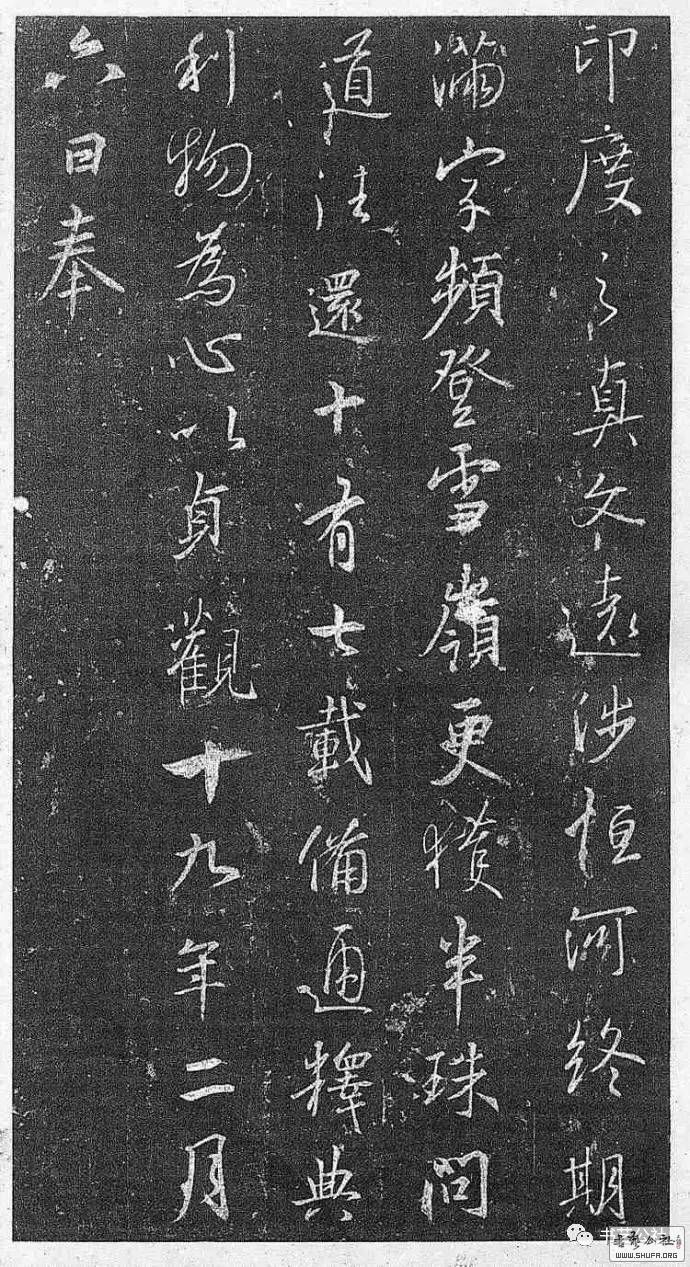 印度之真文遠涉恒河終期
滿字頻登雪嶺更獲半珠問
道法還十有七載備通釋典
利物為心以貞觀十九年二月
六日奉
WWW.SHUFA.ORG